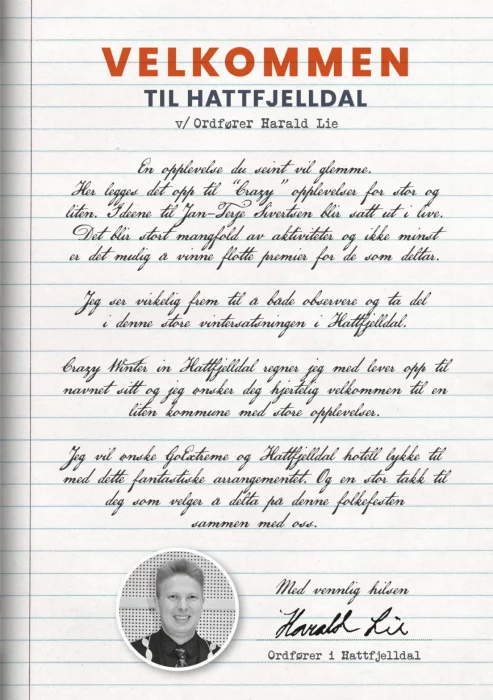 VELKOMMEN
TIL HATTFJELLDAL
v/Ordfører Harald Lie
En opplevelse du seint vil glemme.
Her legges det opp til "Crazy" opplevelser for stor og
liten. Ideene til Jan-Terje Sivertsen blir satt ut i live.
Det blir stort mangfold av aktiviteter og ikke minst
er det mulig a vinne flotte premier for de som deltar.
Jeg ser virkelig frem til a bade observere og ta del
i denne store vintersatsningen i Hattfjelldal.
Crazy Winter in Hattfjelldal regner jeg med lever opp til
navnet sitt og jeg ønsker deg hjertelig velkommen til en
liten kommune med store opplevelser.
Jeg vil ønske GoExtreme og Hattfjelldal hotell lykke til
med dette fantastiske arrangementet. Og en stor takk til
deg som velger a delta pa denne folkefesten
sammen med oss.
Med vennlig hilsen
Harald Lie
Ordfører i Hattfjelldal